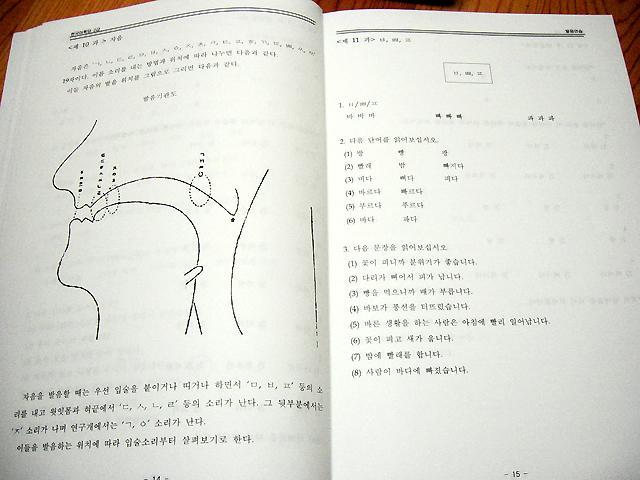 <제 10 과> 자음
자음은 ㄱ, ㄴ, ㄷ, ㄹ, ㅁ, ㅂ, ㅅ, ㅇ, ㅈ, ㅊ, ㅋ, ㅌ, ㅍ, ㅎ, ㄲ, ㄸ, ㅃ, ㅆ, ㅉ
19자이다. 이를 소리를 내는 방법과 위치에 따라 나누면 다음과 같다.
이들 자음의 발음 위치를 그림으로 그리면 다음과 같다.
발음기관도
자음을 발음할 때는 우선 입술을 붙이거나 떼거나 하면서 'ㅁ, ㅂ, ㅍ' 등의 소
리를 내고 윗잇몸과 혀끝에서 'ㄷ, ㅅ, ㄴ, ㄹ' 등의 소리가 난다. 그 뒷부분에서는
'ㅈ' 소리가 나며 연구개에서는 'ㄱ, ㅇ' 소리가 난다.
이들을 발음하는 위치에 따라 입술소리부터 살펴보기로 한다.
- 14 -
발음연습
<제 11 과> ㅂ, ㅃ, ㅍ
ㅂ, ㅃ, ㅍ
1. ㅂ/ㅃ/ㅍ
바 바 바 빠 빠 빠 파 파 파
2. 다음 단어를 읽어보십시오.
(1) 방 빵 팡
(2) 빨래 밤 빠지다
(3) 비다 삐다 피다
(4) 바르다 빠르다
(5) 부르다 푸르다
(6) 바다 파다
3. 다음 문장을 읽어보십시오
(1) 꽃이 피니까 분위기가 좋습니다.
(2) 다리가 삐어서 피가 납니다.
(3) 빵을 먹으니까 배가 부릅니다.
(4) 바보가 풍선을 터뜨렸습니다.
(5) 바른 생활을 하는 사람은 아침에 빨리 일어납니다.
(6) 꽃이 피고 새가 웁니다.
(7) 밤에 빨래를 합니다.
(8) 사람이 바다에 빠졌습니다.
- 15 -